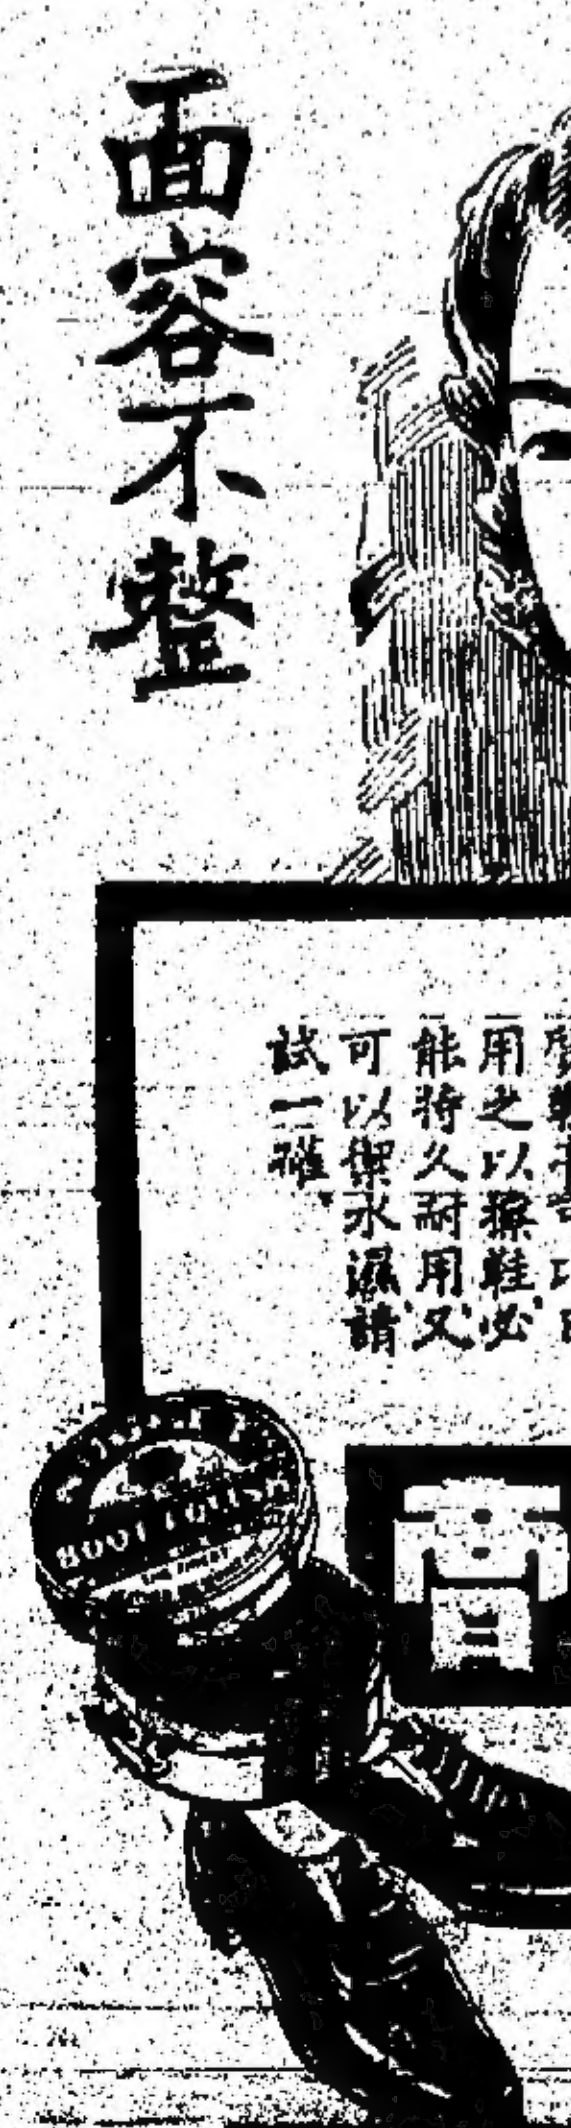 面容不整
用之以擦鞋必
能持久耐用又
可以禦水濕請
試一罐
商
BOOT POLISH